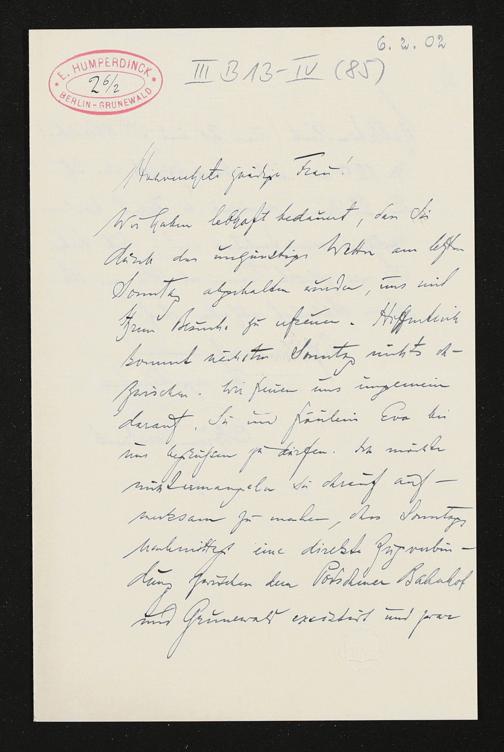 6.2.02
E. HUMPERDINCK
2 6/2
BERLIN-GRUNEWALD
III B 13-IV (85)
Hochverehrte gnädige Frau!
Wir haben lebhaft bedauert, dass Sie
durch das ungünstige Wetter am letzten
Sonntag abgehalten wurden, uns mit
Ihrem Besuche zu erfreuen. Hoffentlich
kommt nächsten Sonntag nichts da-
zwischen. Wir freuen uns ungemein
darauf, Sie und Fräulein Eva bei
uns begrüßen zu dürfen. Ich möchte
nicht ermangeln Sie darauf auf-
merksam zu machen, dass Sonntags
Nachmittags eine direkte Zugverbin-
dung zwischen dem Potsdamer Bahnhof
und Grunewald existirt und zwar